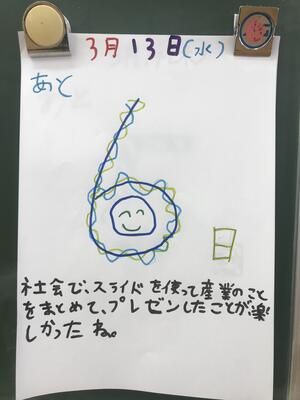 3月13日(水)
あと
6
日
社会で、スライドを使って産業のこと
をまとめて、プレゼンしたことが楽
しかったね。